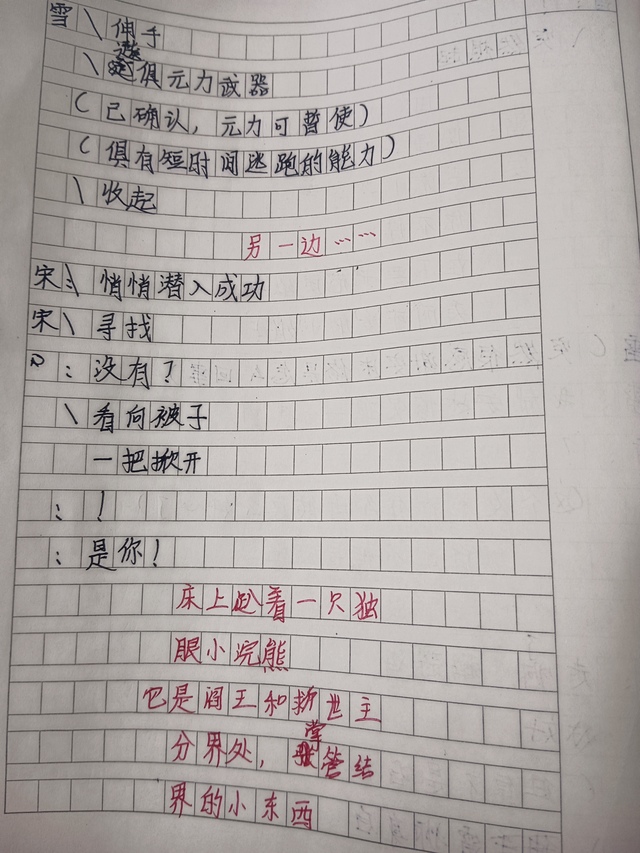 雪\伸手
\选俱元力武器
(已确认，元力可暂使)
(俱有短时间逃跑的能力)
\收起
另一边……
宋:\悄悄潜入成功
宋\寻找
:没有？
\看向被子
一把掀开
:！
:是你！
床上趴着一只独
眼小浣熊
它是阎王和新世主
分界处，掌管结
界的小东西